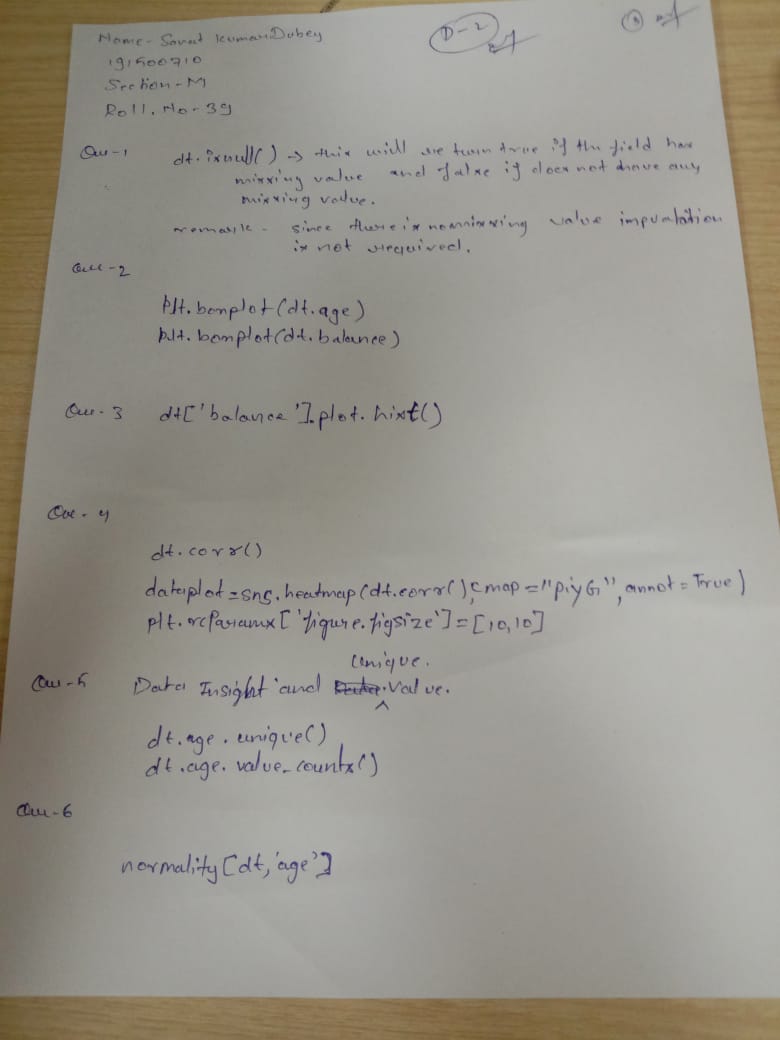 D-2
Name - Sarat Kumar Dubey
191500710
Section - M
Roll. No - 39
Que-1 dt.isnull() → this will return true if the field has
missing value and false if does not have any
missing value.
remark - since there is no missing value imputation
is not required.
Que-2
plt.boxplot(dt.age)
plt.boxplot(dt.balance)
Que-3 dt['balance'].plot.hist()
Que-4
dt.corr()
dataplot=sns.heatmap(dt.corr(),cmap="piyG", annot=True)
plt.rcParams['figure.figsize']=[10,10]
unique.
Que-5 Data Insight and value.
dt.age.unique()
dt.age.value_counts()
Que-6
normality[dt,'age']